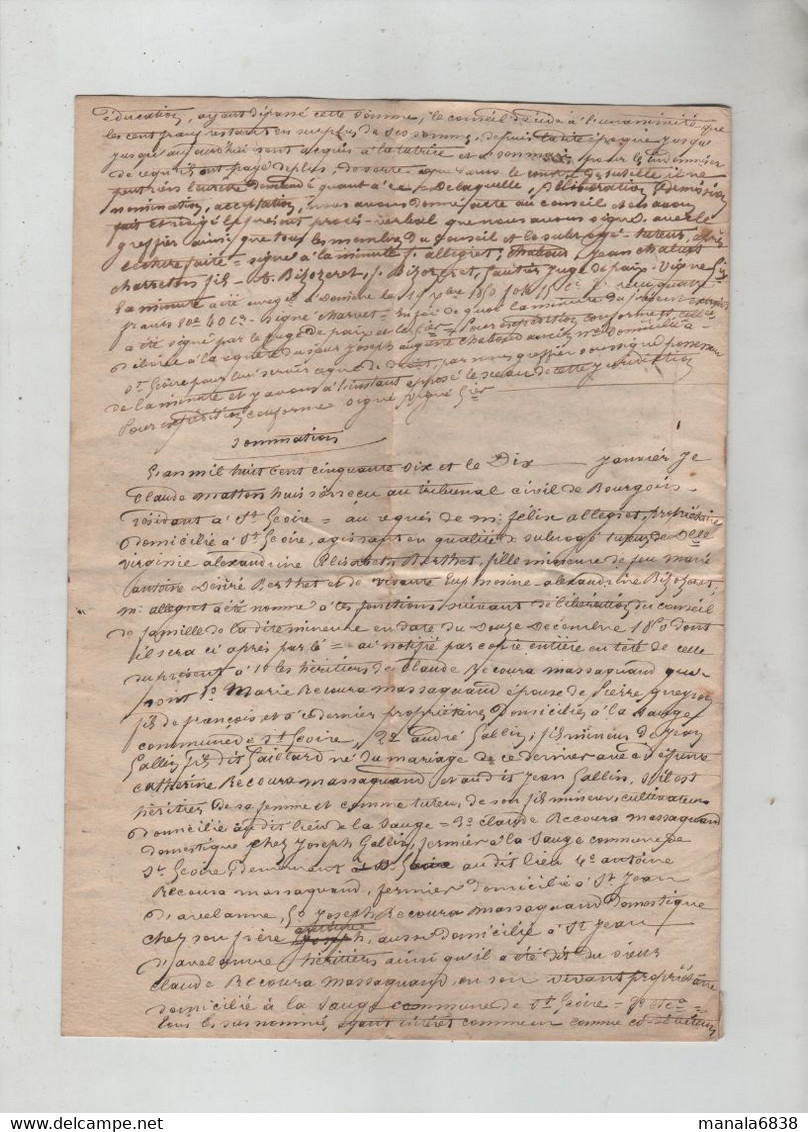 éducation, ayant dépassé cette somme, le conseil décide à l'unanimité que
les cent francs restant en surplus de ses sommes, depuis la dite époque jusqu'
jusqu'aujourd'hui sont acquis à la tutrice et pour les indemniser
de ce qu'ils ont payé de plus, de sorte que dans le compte de tutelle il ne
peut rien leur être demandé quant à ce. De laquelle, Délibération
nomination, acceptation, nous avons donné acte au conseil et en avons
fait et rédigé le présent procès-verbal que nous avons signé avec le
greffier ainsi que tous les membres du conseil et le subrogé-tuteur, après
lecture faite = signé à la minute f. allegret, chaboud, Jean
charreton fils, Bizozeret, J. Bizozeret, juge de paix. Vigne Gier
La minute a été enregistrée
francs 80c 40c signé charvet = En foi de quoi la minute du présent
a été signé par le juge de paix et le Gier = Pour expédition conforme
délivrée à la requête du sieur Joseph auguste chaboud domicilié à
St Geoire pour lui servir ce que de droit, par nous greffier soussigné possesseur
de la minute et y avons à l'instant apposé le sceau de cette juridiction
Pour expédition conforme signé Vigne Gier
Sommation
L'an mil huit cent cinquante dix et le Dix janvier je
Claude Matton huissier reçu au tribunal civil de Bourgoin
résidant à St Geoire = au requis de mr félix allegret, propriétaire
domicilié à St Geoire, agissant en qualité de subrogé tuteur de Delle
virginie alexandrine Elisabeth Berthet, fille mineure de feu marie
antoine Désiré Berthet et de vivante Euphrosine alexandrine Bizozeret
mr allegret a été nommé à ces fonctions suivant délibération du conseil
de famille de la dite mineure en date du Douze Décembre 1850 dont
il sera ci après parlé = ai notifié par copie entière en tête de celle
du présent à 1° les héritiers de Claude Recoura massaquand qui
sont 1° Marie Recoura massaquand épouse de Pierre
fils de françois et à ce dernier propriétaires domiciliés à la Sauge
commune de St Geoire, 2° andré Gallin, fils mineur de Jean
Gallin fils dit Gaillard né du mariage de ce dernier avec défunte
catherine Recoura massaquand et audit Jean Gallin,
héritier de sa femme et comme tuteur de son fils mineur, cultivateur
domicilié audit lieu de la Sauge = 3° claude Recoura massaquand
domestique chez Joseph Gallin, fermier à la Sauge commune de
St Geoire demeurant audit lieu 4° antoine
Recoura massaquand, fermier domicilié à St Jean
d'avelanne, 5° Joseph Recoura massaquand domestique
chez son frère antoine, aussi domicilié à St Jean
d'avelanne héritiers ainsi qu'il a été dit du sieur
claude Recoura massaquand en son vivant propriétaire
domicilié à la Sauge commune de St Geoire
tous les sus nommés, ayant intérêt commun comme co-débiteurs
www.delcampe.net
manala6838